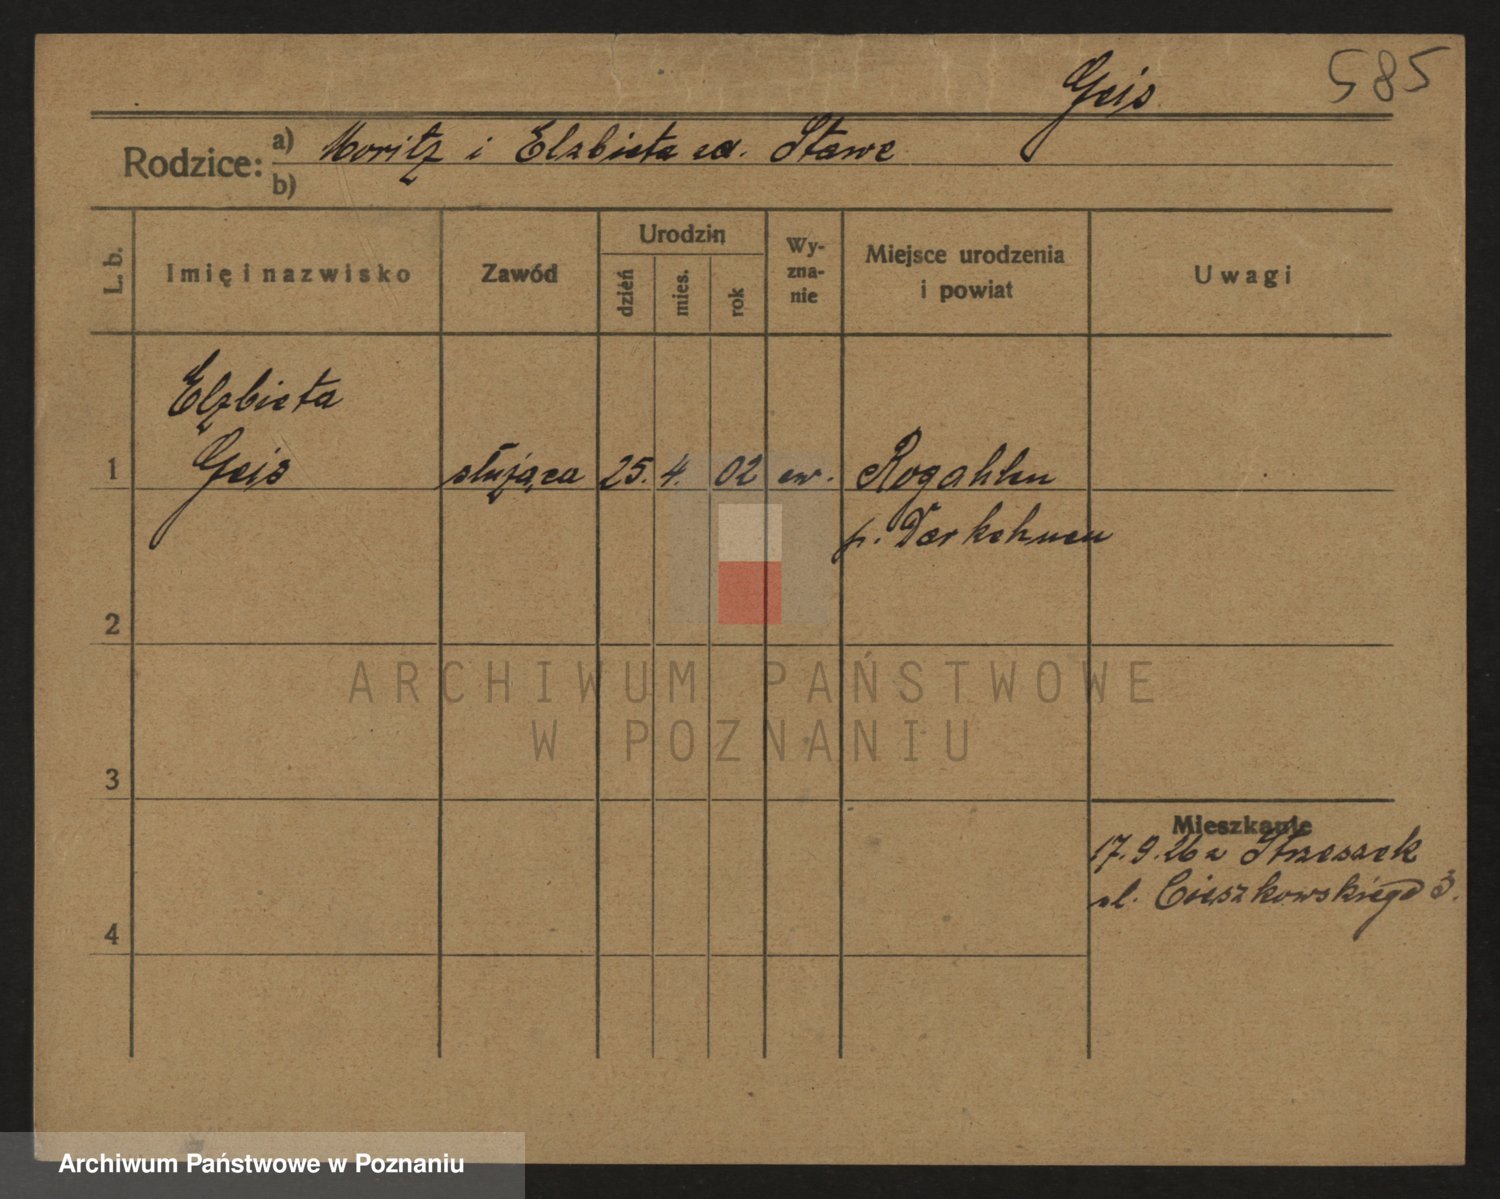 Geis 585
Rodzice: a) Moritz i Elzbieta zd. Stawe
b)
L. b. Imię i nazwisko Zawód Urodzin dzień mies. rok Wy-zna-nie Miejsce urodzenia i powiat Uwagi
Elzbieta
1 Geis służąca 25. 4. 02 ew. Rogahlen
p. Darkehmen
2
ARCHIWUM PAŃSTWOWE
W POZNANIU
3
Mieszkanie
17.9.26 z Strzeszek
ul. Cieszkowskiego 3.
4
Archiwum Państwowe w Poznaniu